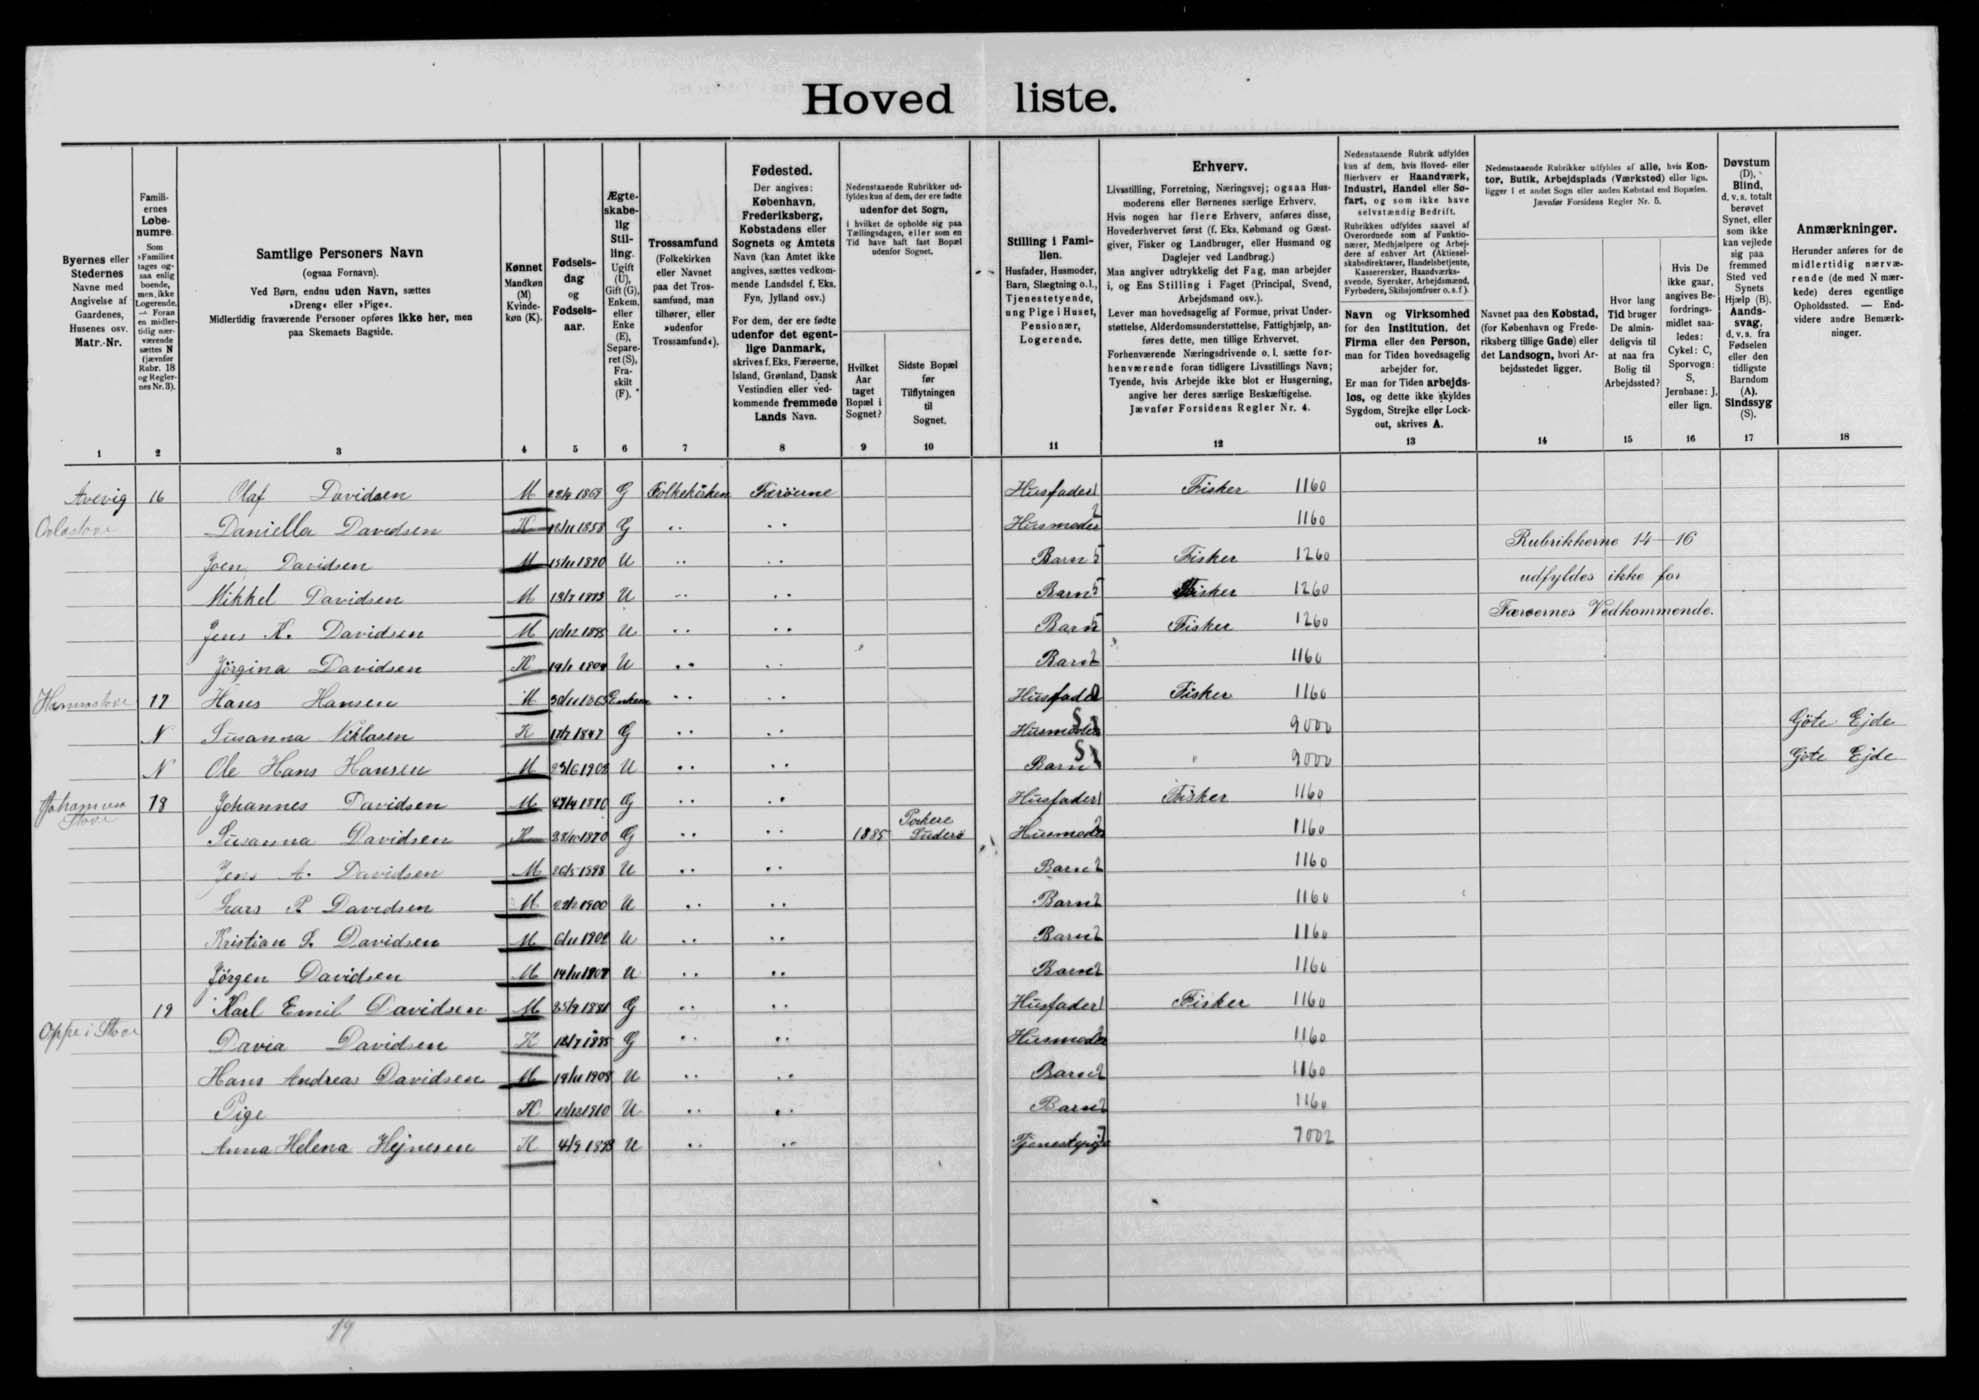 Hoved liste.
Byernes eller
Stedernes
Navne med
Angivelse af
Gaardenes,
Husenes osv.
Matr.-Nr.
1
Famili-
ernes
Løbe-
numre.
Som
»Familie«
tages og-
saa enlig
boende,
men ikke
Logerende.
— Foran
en midler-
tidig nær-
værende
sættes N
(jævnfør
Rubr. 18
og Regler-
nes Nr. 3).
2
Samtlige Personers Navn
(ogsaa Fornavn).
Ved Børn, endnu uden Navn, sættes
»Dreng« eller »Pige«.
Midlertidig fraværende Personer opføres ikke her, men
paa Skemaets Bagside.
3
Kønnet
Mandkøn
(M)
Kvinde-
køn (K).
4
Fødsels-
dag
og
Fødsels-
aar.
5
Ægte-
skabe-
lig
Stil-
ling.
Ugift
(U),
Gift (G),
Enkem.
eller
Enke
(E),
Separe-
ret (S),
Fra-
skilt
(F).
6
Trossamfund
(Folkekirken
eller Navnet
paa det Tros-
samfund, man
tilhører, eller
»udenfor
Trossamfund«).
7
Fødested.
Der angives:
København,
Frederiksberg,
Købstadens eller
Sognets og Amtets
Navn (kan Amtet ikke
angives, sættes vedkom-
mende Landsdel f. Eks.
Fyn, Jylland osv.)
For dem, der ere fødte
udenfor det egent-
lige Danmark,
skrives f. Eks. Færøerne,
Island, Grønland, Dansk
Vestindien eller ved-
kommende fremmede
Lands Navn.
8
Nedenstaaende Rubrikker ud-
fyldes kun af dem, der ere fødte
udenfor det Sogn,
i hvilket de opholde sig paa
Tællingsdagen, eller som en
Tid have haft fast Bopæl
udenfor Sognet.
Hvilket
Aar
taget
Bopæl i
Sognet?
9
Sidste Bopæl
før
Tilflytningen
til
Sognet.
10
Stilling i Fami-
lien.
Husfader, Husmoder,
Barn, Slægtning o. l.,
Tjenestetyende,
ung Pige i Huset,
Pensionær,
Logerende.
11
Erhverv.
Livsstilling, Forretning, Næringsvej; ogsaa Hus-
moderens eller Børnenes særlige Erhverv.
Hvis nogen har flere Erhverv, anføres disse,
Hovederhvervet først (f. Eks. Købmand og Gæst-
giver, Fisker og Landbruger, eller Husmand og
Daglejer ved Landbrug.)
Man angiver udtrykkelig det Fag, man arbejder
i, og Ens Stilling i Faget (Principal, Svend,
Arbejdsmand osv.).
Lever man hovedsagelig af Formue, privat Under-
støttelse, Alderdomsunderstøttelse, Fattighjælp, an-
føres dette, men tillige Erhvervet.
Forhenværende Næringsdrivende o. l. sætte for-
henværende foran tidligere Livsstillings Navn;
Tyende, hvis Arbejde ikke blot er Husgerning,
angive her deres særlige Beskæftigelse.
Jævnfør Forsidens Regler Nr. 4.
12
Nedenstaaende Rubrik udfyldes
kun af dem, hvis Hoved- eller
Bierhverv er Haandværk,
Industri, Handel eller Sø-
fart, og som ikke have
selvstændig Bedrift.
Rubrikken udfyldes saavel af
Overordnede som af Funktio-
nærer, Medhjælpere og Arbej-
dere af enhver Art (Aktiesel-
skabsdirektører, Handelsbetjente,
Kasserersker, Haandværks-
svende, Syersker, Arbejdsmænd,
Fyrbødere, Skibsjomfruer o. s. f.).
Navn og Virksomhed
for den Institution, det
Firma eller den Person,
man for Tiden hovedsagelig
arbejder for.
Er man for Tiden arbejds-
løs, og dette ikke skyldes
Sygdom, Strejke eller Lock-
out, skrives A.
13
Nedenstaaende Rubrikker udfyldes af alle, hvis Kon-
tor, Butik, Arbejdsplads (Værksted) eller lign.
ligger i et andet Sogn eller anden Købstad end Bopælen.
Jævnfør Forsidens Regler Nr. 5.
Navnet paa den Købstad,
(for København og Frede-
riksberg tillige Gade) eller
det Landsogn, hvori Ar-
bejdsstedet ligger.
14
Hvor lang
Tid bruger
De almin-
deligvis til
at naa fra
Bolig til
Arbejdssted?
15
Hvis De
ikke gaar,
angives Be-
fordrings-
midlet saa-
ledes:
Cykel: C,
Sporvogn:
S,
Jernbane: J,
eller lign.
16
Døvstum
(D),
Blind,
d. v. s. totalt
berøvet
Synet, eller
som ikke
kan vejlede
sig paa
fremmed
Sted ved
Synets
Hjælp (B).
Aands-
svag,
d. v. s. fra
Fødselen
eller den
tidligste
Barndom
(A).
Sindssyg
(S).
17
Anmærkninger.
Herunder anføres for de
midlertidig nærvæ-
rende (de med N mær-
kede) deres egentlige
Opholdssted. — End-
videre andre Bemærk-
ninger.
18
Avevig 16 Olaf Davidsen M G Folkekirken Færöerne Husfader 1 Fisker 1160
Daniella Davidsen K G " " Husmoder 2 1160
Joen Davidsen M U " " Barn 5 Fisker 1260
Mikkel Davidsen M U " " Barn 5 Fisker 1260
Jens K. Davidsen M U " " Barn 5 Fisker 1260
Rubrikkerne 14-16
udfyldes ikke for
Færøernes Vedkommende.
Jörgina Davidsen K U " " Barn 2 1160
17 Hans Hansen M Enkem " " Husfader Fisker 1160
N Susanna Niklasen K G " " Husmoder 9000 Göte Ejde
N Ole Hans Hansen M U " " Barn " 9000 Göte Ejde
18 Johannes Davidsen M G " " Husfader 1 Fisker 1160
Susanna Davidsen K G " " 1885 Porkere Suderö Husmoder 2 1160
Jens A. Davidsen M U " " Barn 2 1160
Lars P. Davidsen M U " " Barn 2 1160
Kristian S. Davidsen M U " " Barn 2 1160
Jörgen Davidsen M U " " Barn 2 1160
Oppe i Stove 19 Karl Emil Davidsen M G " " Husfader 1 Fisker 1160
Davia Davidsen K G " " Husmoder 2 1160
Hans Andreas Davidsen M U " " Barn 2 1160
Pige K U " " Barn 2 1160
Anna Helena Hejnesen K U " " Tjenestepige 7002
19